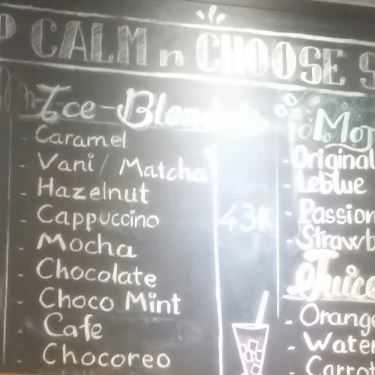 P CALM n CHOOSE S
Ice-Blended
Caramel
- Vani / Matcha
- Hazelnut
- Cappuccino
- Mocha
- Chocolate
- Choco Mint
- Cafe
- Chocoreo
43K
Moj
- Original
- Leblue
- Passion
- Strawb
Juice
- Orange
- Water
- Carrot